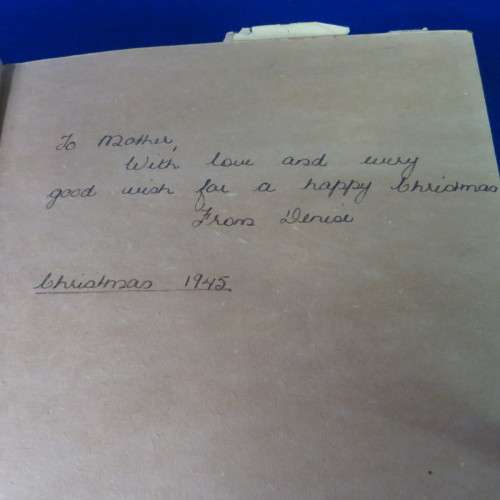 To Mother,
With love and every
good wish for a happy Christmas
From Denise
Christmas 1945.